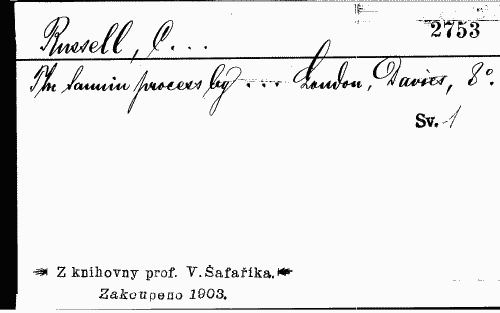 2753
Russell, C...
The tannin process by ... London, Davies, 8°.
Sv. 1
Z knihovny prof. V. Šafaříka.
Zakoupeno 1903.